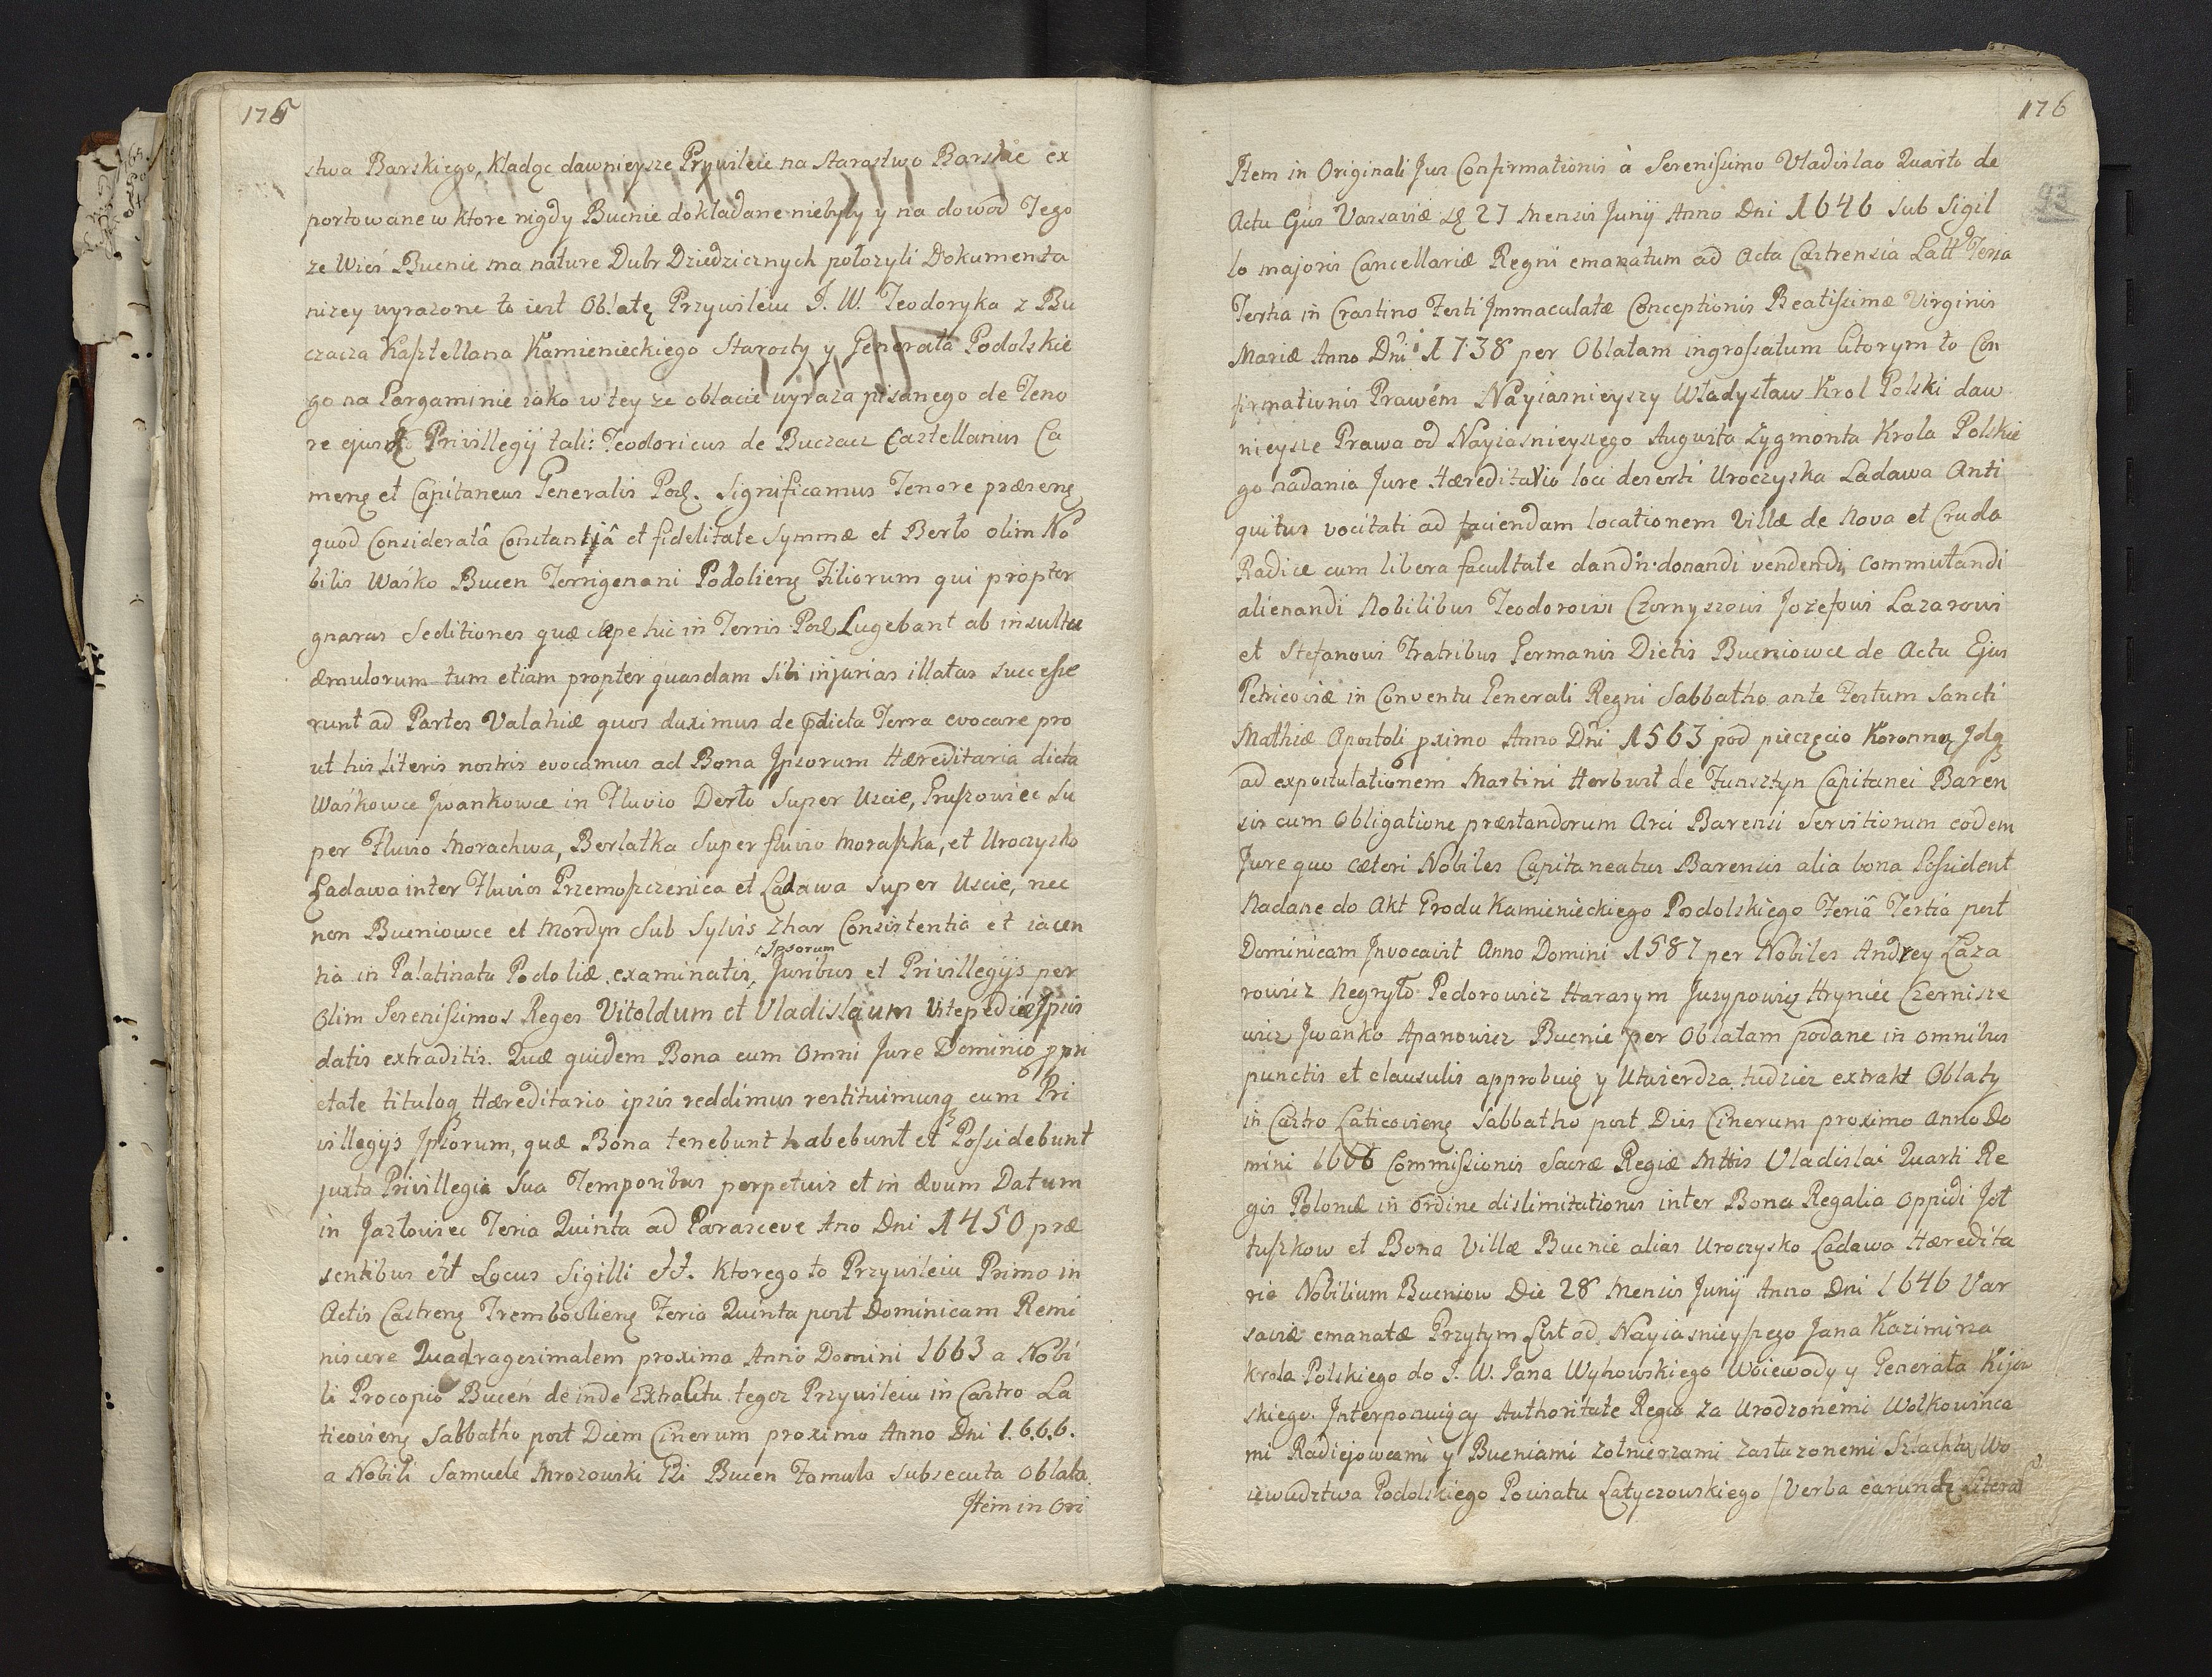 175
stwa Barskiego, Kładąc dawnieysze Prywileie na Starostwo Barskie ex
portowane w ktore nigdy Bucnie dokładane niebyły y na dowod Tego
ze Wieś Bucnie ma nature Dubr Dziedzicznych położyli Dokumenta
nizey wyrazone to iest Oblatę Przywileiu J. W. Teodoryka z Bu
czacza Kasztellana Kamienieckiego Starosty y Generała Podolskie
go na Pargaminie iako w tey ze oblacie wyraża pisanego de Teno
re ejusd Privillegij tali: Teodoricus de Buczacz Castellanus Ca
menę et Capitaneus Generalis Pod. Significamus Tenore præsenę
quod Consideratâ Constantiâ et fidelitate Symmæ et Berło olim No
bilis Waśko Bucen Terrigenani Podolienę Filiorum qui propter
gnaras Seditiones quæ sæpe hic in Terris Pod Lugebant ab insultu
æmulorum tum etiam propter quasdam Sibi injurias illatas successe
runt ad Partes Valahiæ quos duximus de pdicta Terra evocare pro
ut his literis nostris evocamus ad Bona Jpsorum Hæreditaria dicta
Waśkowce Jwankowce in Fluvio Derło Super Uscie, Gruszowiec Su
per Fluvio Morachwa, Berlatka Super fluvio Moraszka, et Uroczysko
Ladawa inter Fluvios Przemoszczenica et Ladawa Super Uscie, nec
non Bucniowce et Mordyn Sub Sylvis Zhar Consistentia et iacen
Jpsorum
tia in Palatinatu Podoliæ examinatis, Juribus et Privillegijs per
Olim Serenissimos Reges Vitoldum et Vladislaum Utepedie Jpsis
datis extraditis. Quæ quidem Bona cum Omni Jure Dominio ppri
etate tituloq Hæreditario ipsis reddimus restituimusq cum Pri
villegijs Jpsorum, quæ Bona tenebunt habebunt et Possidebunt
juxta Privillegia Sua Temporibus perpetuis et in ævum Datum
in Jazłowiec Feria Quinta ad Parasceve Ano Dni 1450 præ
sentibus ett Locus Sigilli ett. Ktorego to Przywileiu Primo in
Actis Castrenę Trembovlienę Feria Quinta post Dominicam Remi
niscere Quadragesimalem proxima Anno Domini 1663 a Nobi
li Procopio Bucen deinde Extraktu tegoz Przywileiu in Castro La
ticovienę Sabbatho post Diem Cinerum proximo Anno Dni 1.6.6.6.
a Nobili Samuele Mrozowski Pti Bucen Famulo subsecuta Oblata
Jtem in Ori
176
93
Jtem in Originali Jus Confirmationis à Serenissimo Vladislao Quarto de
Actu Ejus Varsaviæ 27 Mensis Junij Anno Dni 1646 sub Sigil
lo majoris Cancellariæ Regni emanatum ad Acta Castrensia Latt Feria
Tertia in Crastino Festi Jmmaculatæ Conceptionis Beatissimæ Virginis
Mariæ Anno Dni 1738 per Oblatam ingrossatum ktorym to Con
firmationis Prawém Nayiasnieyszy Władysław Krol Polski daw
nieysze Prawa od Nayiasnieyszego Augusta Zygmonta Krola Polskie
go nadania Jure Hæreditario loci deserti Uroczyska Ladawa Anti
quitus vocitati ad faciendam locationem Villæ de Nova et Cruda
Radice cum libera facultate dandi donandi vendendi commutandi
alienandi Nobilibus Teodorowi Czornyszowi Jozefowi Lazarowi
et Stefanowi Fratribus Germanis Dictis Bucniowce de Actu Ejus
Petricoviæ in Conventu Generali Regni Sabbatho ante Festum Sancti
Mathiæ Apostoli pximo Anno Dni 1563 pod pieczęcio Koronną Jdq
ad expostulationem Martini Herburt de Funsztyn Capitanei Baren
sis cum Obligatione præstandorum Arci Barensi Servitiorum eodem
Jure quo cæteri Nobiles Capitaneatus Barensis alia bona Possident
Nadane do Akt Grodu Kamienieckiego Podolskiego Feriâ Tertia post
Dominicam Jnvocavit Anno Domini 1587 per Nobiles Andrey Laza
rowicz Negryło Pedorowicz Harasym Juzypowicz Hryniec Czernisze
wicz Jwanko Apanowicz Bucnie per Oblatam podane in omnibus
punctis et clausulis approbuię y Utwierdza tudziez extrakt Oblaty
in Castro Laticovienę Sabbatho post Dies Cinerum proximo Anno Do
mini 1666 Commissionis Sacræ Regiæ Mttis Vladislai Quarti Re
gis Poloniæ in ordine dislimitationis inter Bona Regalia Oppidi Joł
tuszkow et Bona Villæ Bucnie alias Uroczysko Ladawa Hæredita
rie Nobilium Bucniow Die 28 Mensis Junij Anno Dni 1646 Var
saviæ emanatæ Przytym List od Nayiasnieyszego Jana Kazimirza
Krola Polskiego do J. W. Jana Wyhowskiego Woiewody y Generała Kijow
skiego Jnterponuięcy Authoritate Regia za Urodzonemi Wołkowinca
mi Radiejowcami y Bucniami Zołnierzami Zasłużonemi Szlachtą Wo
iewudztwa Podolskiego Powiatu Latyczowskiego /Verba earundę Litera